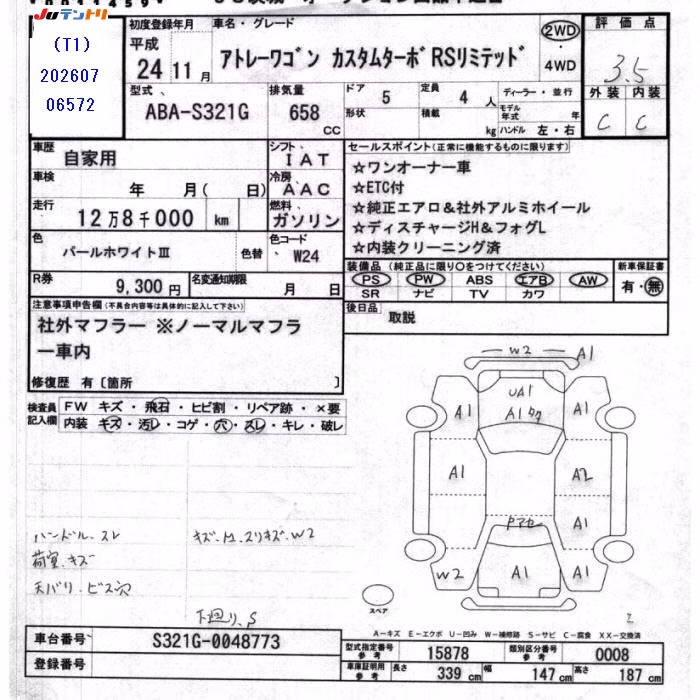 JUテントリ
(T1)
202607
06572
初度登録年月
平成
24 11 月
車名・グレード
アトレーワゴン カスタムターボRSリミテッド
2WD
・
4WD
評価点
3.5
外装 内装
C C
型式
ABA-S321G
排気量
658
CC
ドア
5
形状
定員
4 人
積載
kg
ディーラー・並行
モデル年式 年
ハンドル 左・右
車歴
自家用
シフト
IAT
車検
年 月( 日)
冷房
AAC
走行
12万8千000 km
燃料
ガソリン
色
パールホワイトⅢ
色替
色コード
W24
R券
9,300 円
名変通知期限
月 日
セールスポイント(正常に機能するものに限ります)
☆ワンオーナー車
☆ETC付
☆純正エアロ&社外アルミホイール
☆ディスチャージH&フォグL
☆内装クリーニング済
装備品(純正品に限り○をつけてください)
PS PW ABS エアB AW
SR ナビ TV カワ
新車保証書
有・無
後日品
取説
注意事項申告欄(不具合内容等は具体的に記入して下さい)
社外マフラー ※ノーマルマフラ
ー車内
修復歴 有〔箇所 〕
検査員
記入欄
FW キズ・飛石・ヒビ割・リペア跡・×要
内装 キズ・汚レ・コゲ・穴・スレ・キレ・破レ
ハンドル.スレ
荷室.キズ
天バリ.ビス穴
下廻り.S
W2
A1
UA1
A1
A1
A1
A1
A2
A1
W2
A1
A1
スペア
A-キズ E-エクボ U-凹み W-補修跡 S-サビ C-腐食 XX-交換済
車台番号
S321G-0048773
登録番号
型式指定番号
参考
15878
類別区分番号
参考
0008
車庫証明用
参考
長さ
339 cm
幅
147 cm
高さ
187 cm